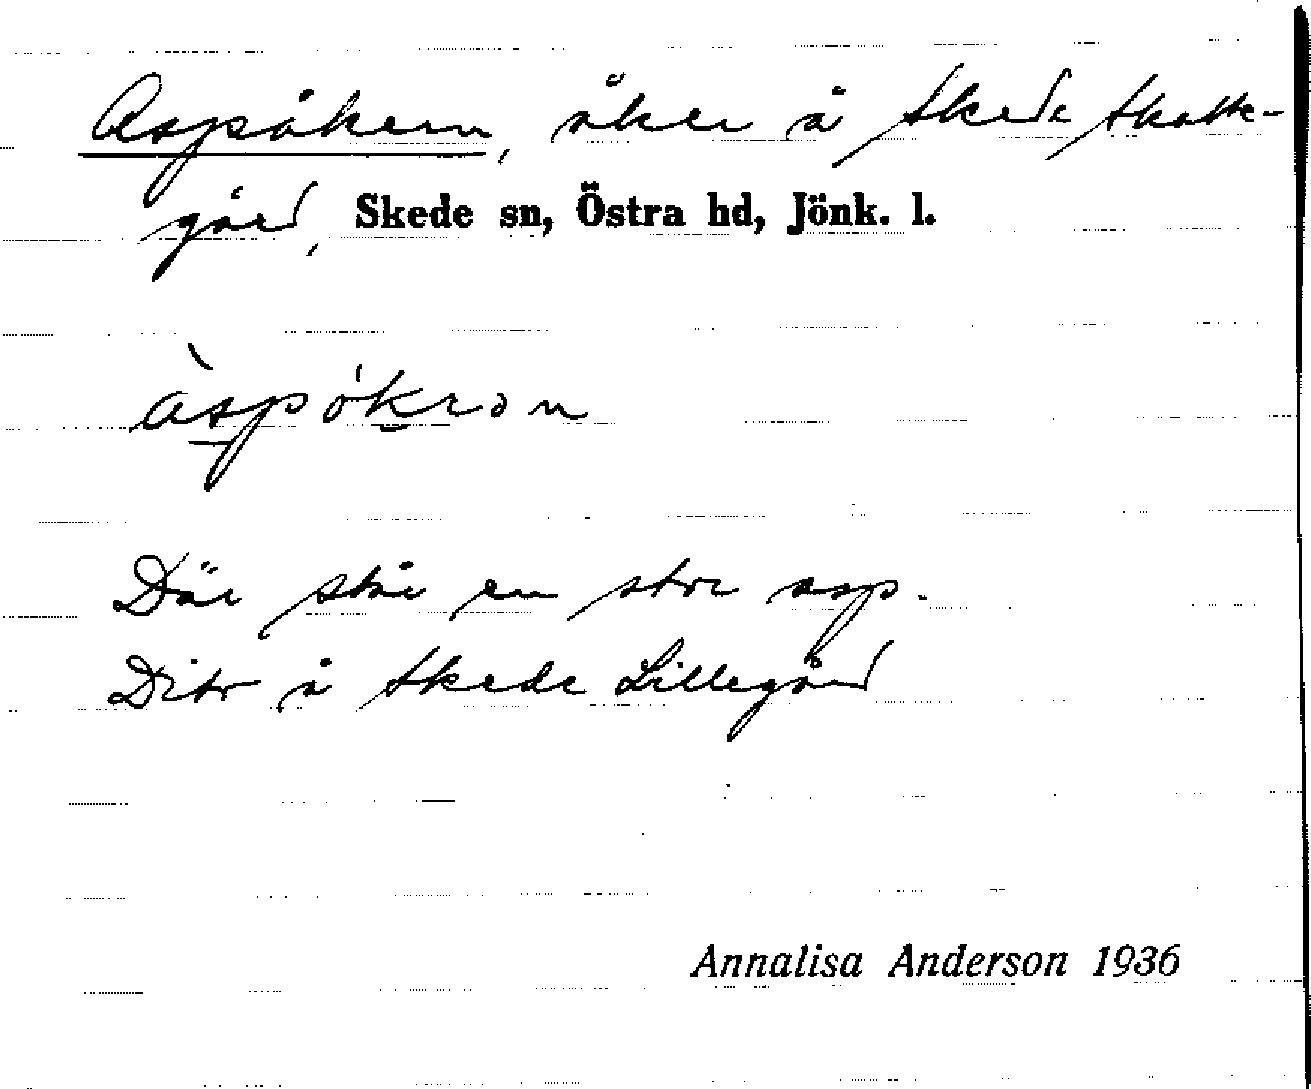 Aspåkern, åker å Skede Skatte-
gård, Skede sn, Östra hd, Jönk. l.
àspókrən
Där står en stor asp.
Dito å Skede Lillegård
Annalisa Anderson 1936